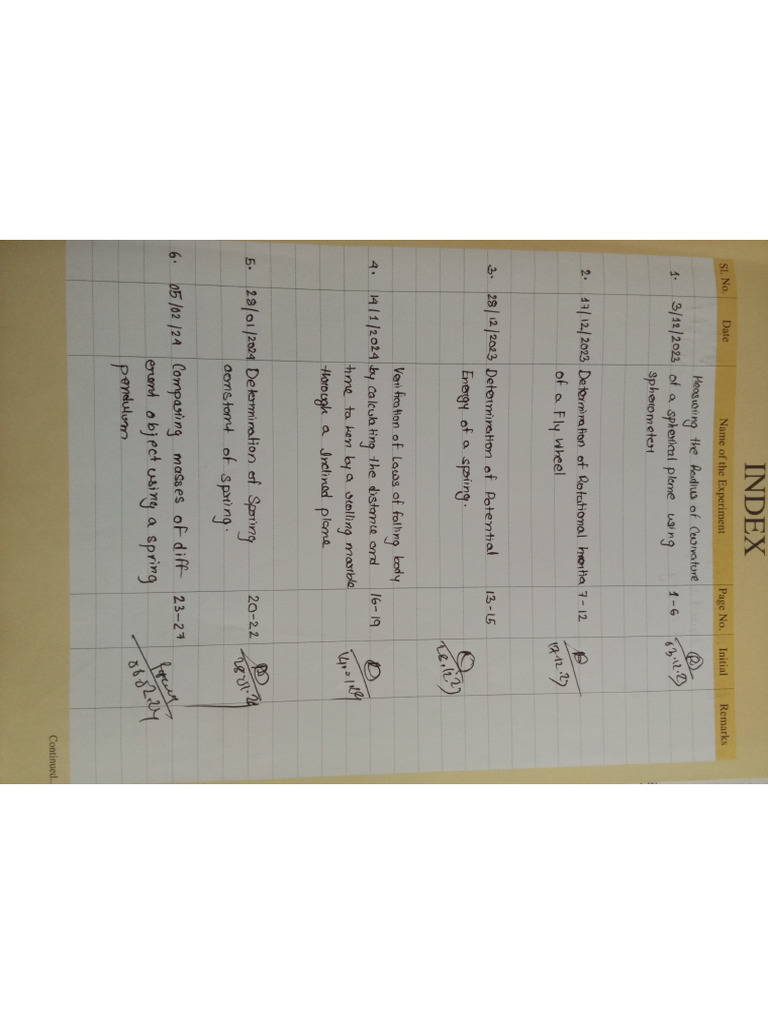 INDEX
Sl. No. Date Name of the Experiment Page No. Initial Remarks
Measuring the Radius of Curvature
1. 3/12/2023 of a spherical plane using 1-6
spherometer
03.12.23
2. 17/12/2023 Determination of Rotational Inertia 7-12
of a Fly Wheel
17.12.23
3. 28/12/2023 Determination of Potential 13-15
Energy of a spring.
28.12.23
Varification of Laws of falling body
4. 14/1/2024 by calculating the distance and 16-19
time taken by a rolling marble
through a Inclined plane
14.01.24
5. 28/01/2024 Determination of Spring 20-22
constant of spring.
28.01.24
6. 05/02/24 Comparing masses of diff 23-27
erent object using a spring
pendulum
Continued...